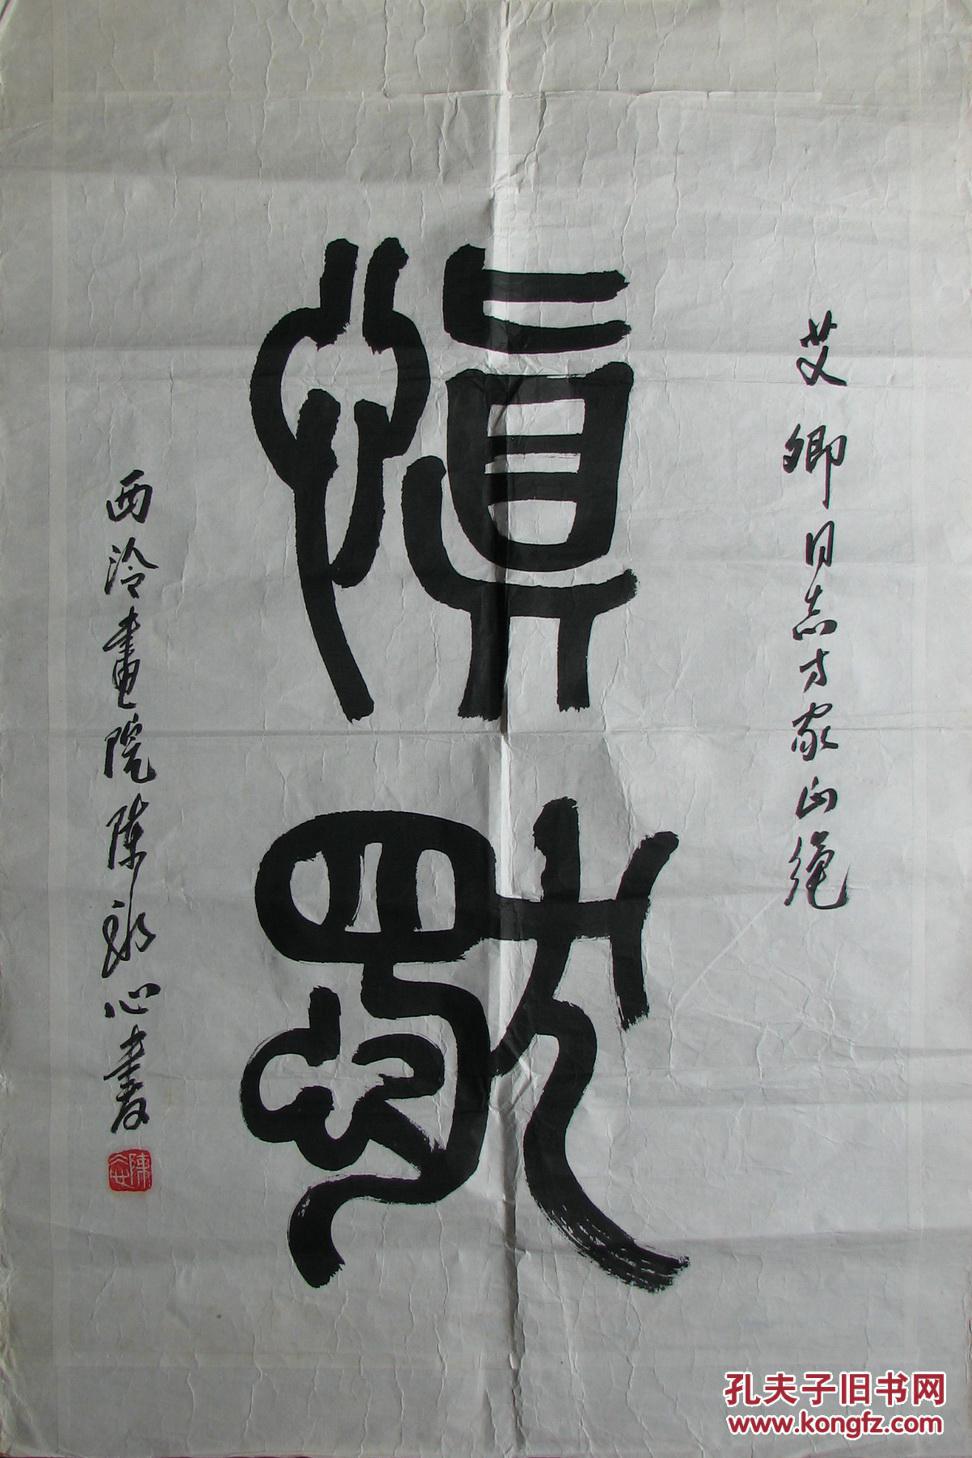 艾卿同志方家正绳
慎独
西泠畫院陳永心書
孔夫子旧书网
www.kongfz.com